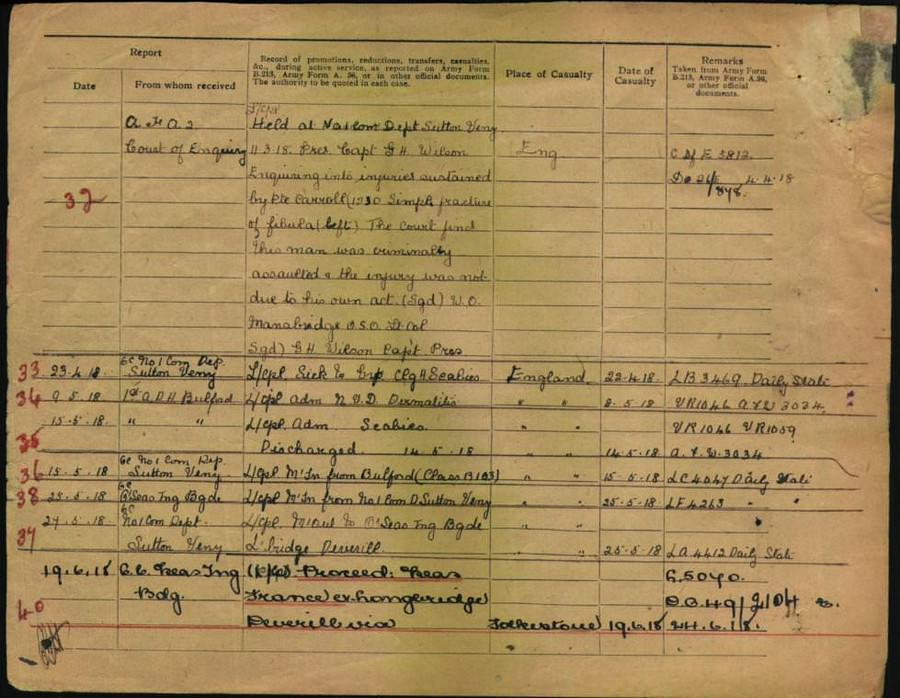 Report
Record of promotions, reductions, transfers, casualties, &c., during active service, as reported on Army Form B.213, Army Form A. 36, or in other official documents. The authority to be quoted in each case.
Place of Casualty
Date of Casualty
Remarks Taken from Army Form B.213, Army Form A.36, or other official documents.
Date From whom received
L/Cpl
A F A 2 Held at No 1 Com Dept Sutton Veny
Court of Enquiry 11.3.18. Pres. Capt G H. Wilson Eng C of E 5812.
Enquiring into injuries sustained 4.4.18
32 by Pte Carroll (1230 Simple fracture 878.
of fibula (left) The Court find
this man was criminally
assaulted & the injury was not
due to his own act. (Sgd) W.O.
Manabridge D.S.O. Lt Col
Sgd) G H Wilson Capt. Pres
33 23.4.18. No 1 Com Dep. Sutton Veny L/Cpl. Sick to Hosp Scabies England 22-4-18. LB 3469. Daily State
34 9.5.18. 1st A D H Bulford L/Cpl adm Dermatitis " " 8.5.18 VR1046 3034.
15.5.18. " " L/Cpl. Adm. Scabies. " " VR1046 VR1059
35 Discharged. 14.5.18 " " 14.5.18 3034
36 15.5.18. No 1 Com Dep. Sutton Veny L/Cpl M'In from Bulford (Class B1A3) " " 15-5-18 LC4047 Daily State
38 25.5.18 O'Seas Tng Bgde L/Cpl M'In from No 1 Com D Sutton Veny " " 25-5-18 LF4263 " "
27.5.18. No 1 Com Dept. L/Cpl. M'Out to O'Seas Tng Bgde " "
37 Sutton Veny L'bridge Deverill. " " 25.5.18 LA4412 Daily State
19.6.18 O.C. O'seas Tng (L/Cpl) Proceed: O'seas G.5040.
40 Bdg. France ex Longbridge
Deverill via Folkestone 19.6.18 24.6.18.